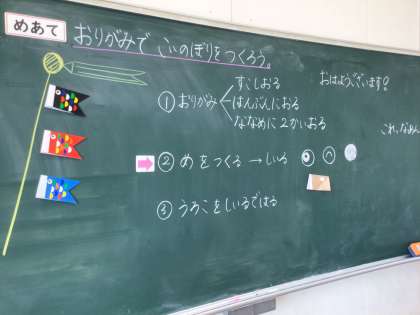 めあて
おりがみで こいのぼりをつくろう。
おはようございます!
①おりがみ
すこしおる
はんぶんにおる
ななめに2かいおる
②めをつくる→しろ
③うろこをしいるではる